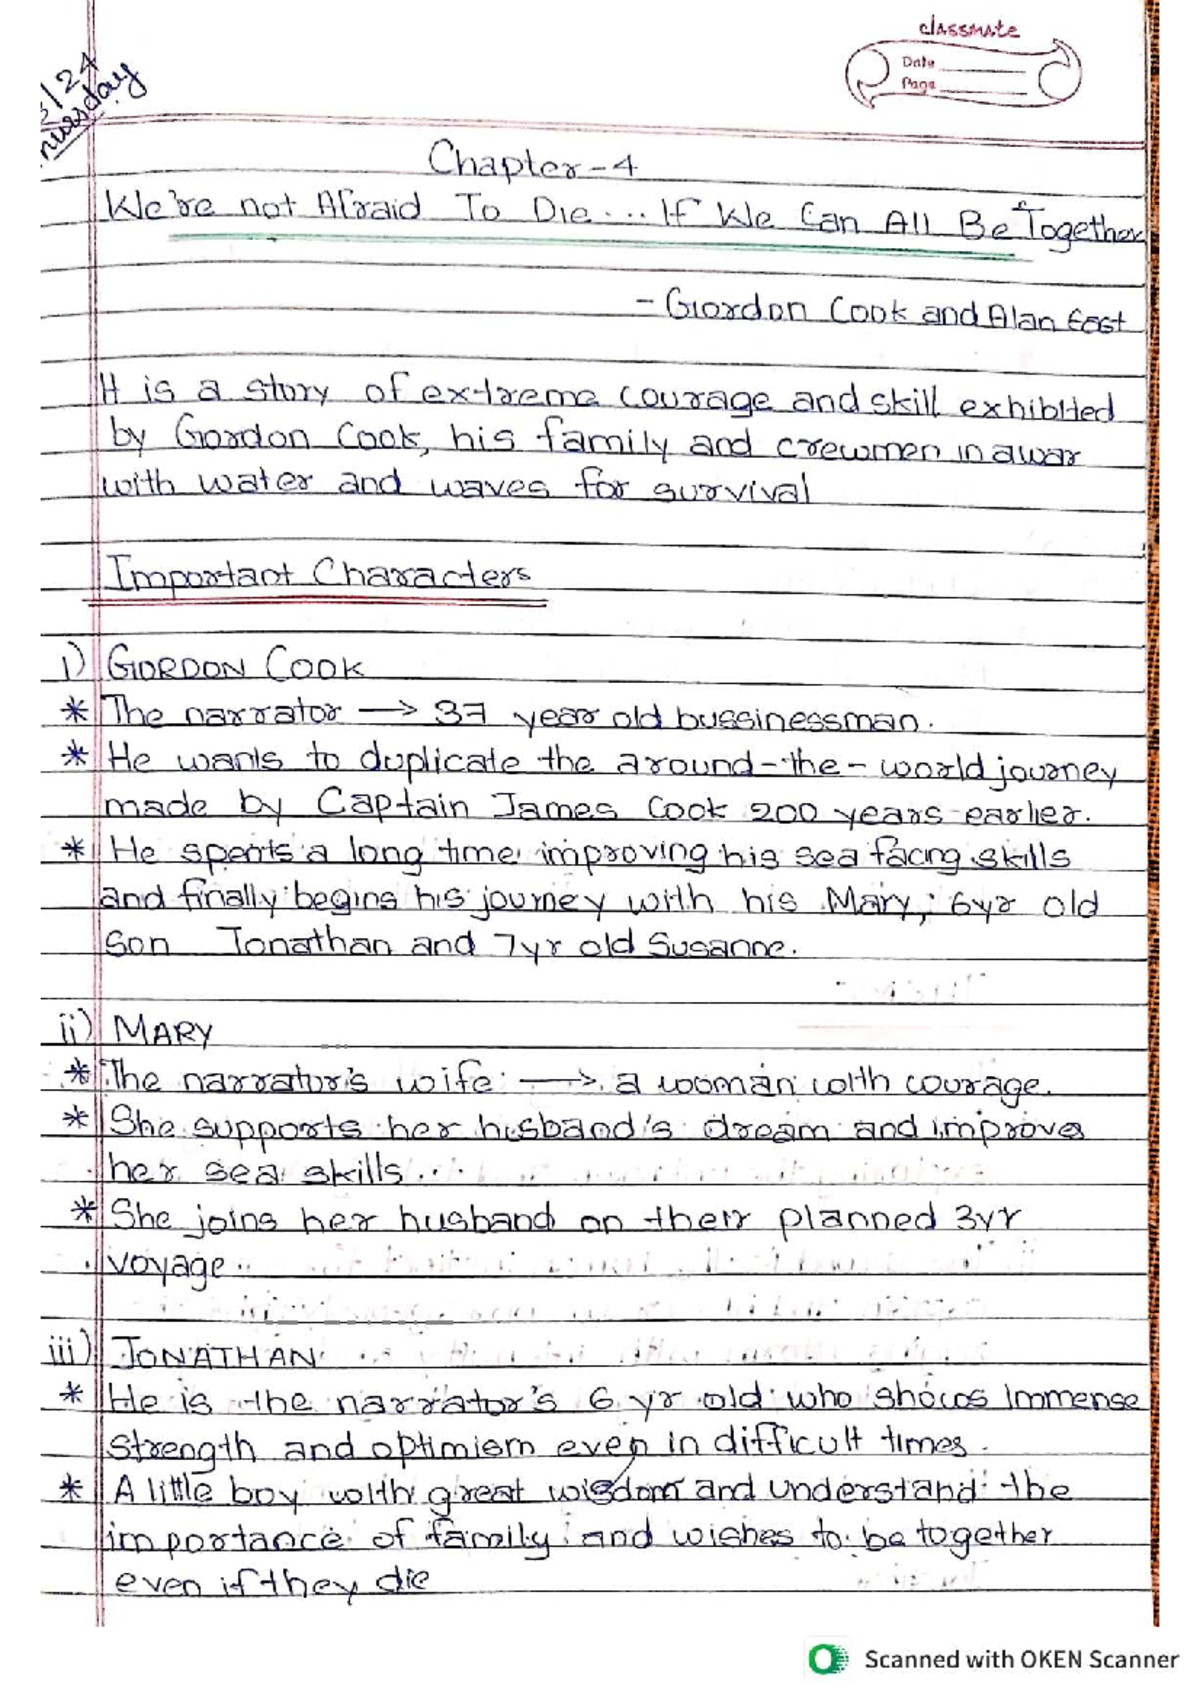 classmate
Date
Page
/24
Chapter-4
We're not Afraid To Die... If We Can All Be Together
- Gordon Cook and Alan East
It is a story of extreme courage and skill exhibited
by Gordon Cook, his family and crewmen in a war
with water and waves for survival
Important Characters
i) GORDON COOK
* The narrator → 37 year old bussinessman.
* He wants to duplicate the around-the-world journey
made by Captain James Cook 200 years earlier.
* He spents a long time improving his sea facing skills
and finally begins his journey with his Mary, 6yr old
son Jonathan and 7yr old Susanne.
ii) MARY
* The narrator's wife → a woman with courage.
* She supports her husband's dream and improve
her sea skills...
* She joins her husband on their planned 3yr
voyage
iii) JONATHAN
* He is the narrator's 6 yr old who shows immense
strength and optimism even in difficult times.
* A little boy with great wisdom and understand the
importance of family and wishes to be together
even if they die
Scanned with OKEN Scanner